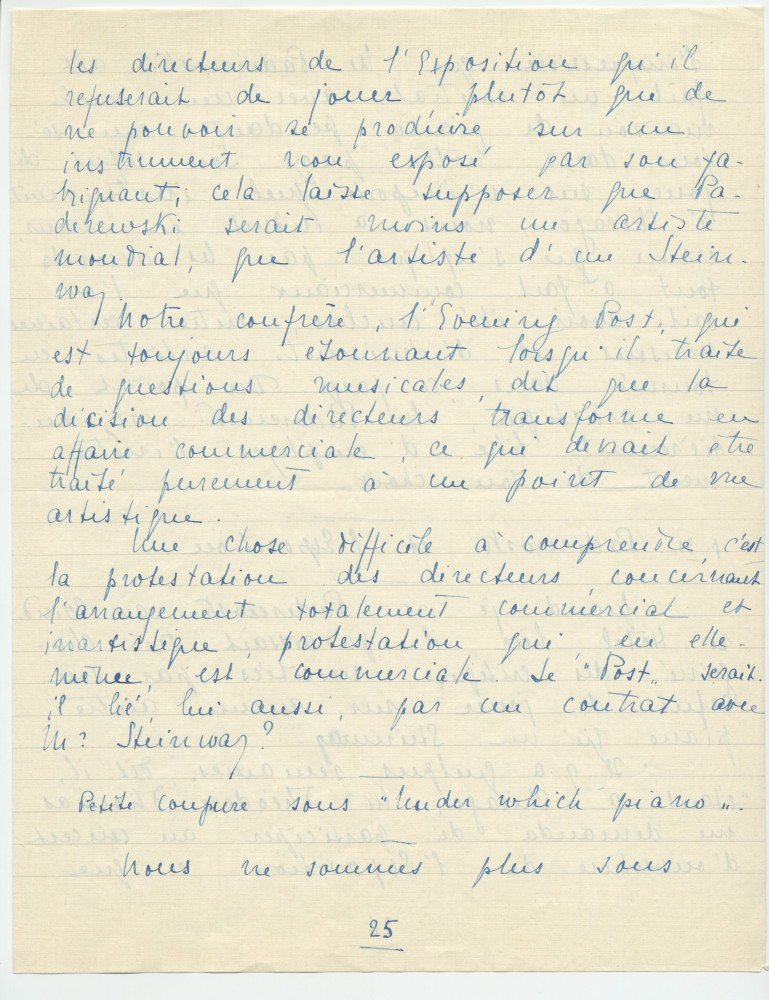 les directeurs de l'Exposition qu'il
refuserait de jouer plutôt que de
ne pouvoir se produire sur un
instrument non exposé par son fa-
briquant; cela laisse supposer que Pa-
derewski serait moins un artiste
mondial, que l'artiste d'un Stein-
way.
Notre confrère, l'"Evening Post", qui
est toujours étonnant lorsqu'il traite
de questions musicales, dit que la
décision des directeurs transforme en
affaire commerciale, ce qui devrait être
traité purement à un point de vue
artistique.
Une chose difficile à comprendre, c'est
la protestation des directeurs concernant
l'arrangement totalement commercial et
inartistique, protestation qui, en elle-
même, est commerciale. Le "Post" serait-
il lié, lui aussi, par un contrat avec
Mr Steinway?
Petite coupure sous "Under which piano".
Nous ne sommes plus sous
25